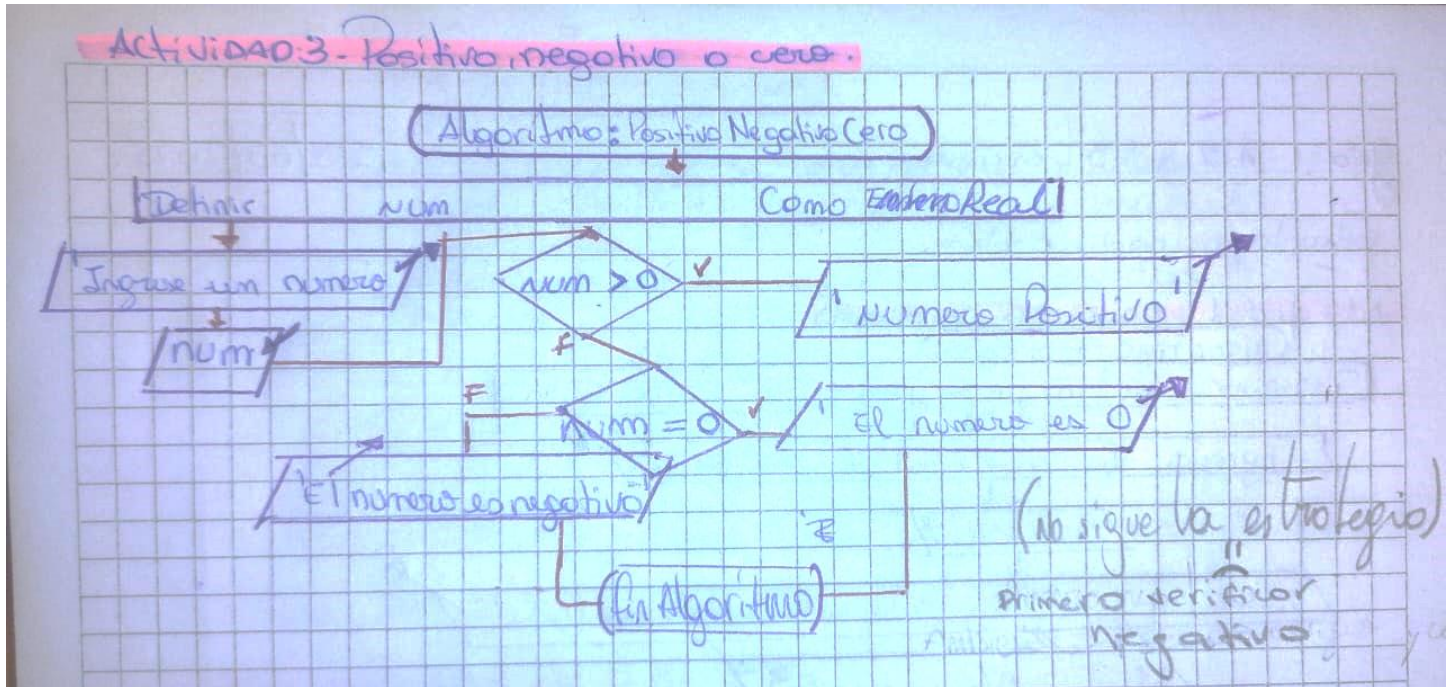 ACTIVIDAD:3- Positivo, negativo o cero.
Algoritmo: Positivo Negativo Cero
Definir num Como Real
'Ingrese un numero'
num
num > 0
V
'Numero Positivo'
F
num = 0
V
'El numero es 0'
F
'El numero es negativo'
Fin Algoritmo
(No sigue la estrategia)
Primero verificar
negativo